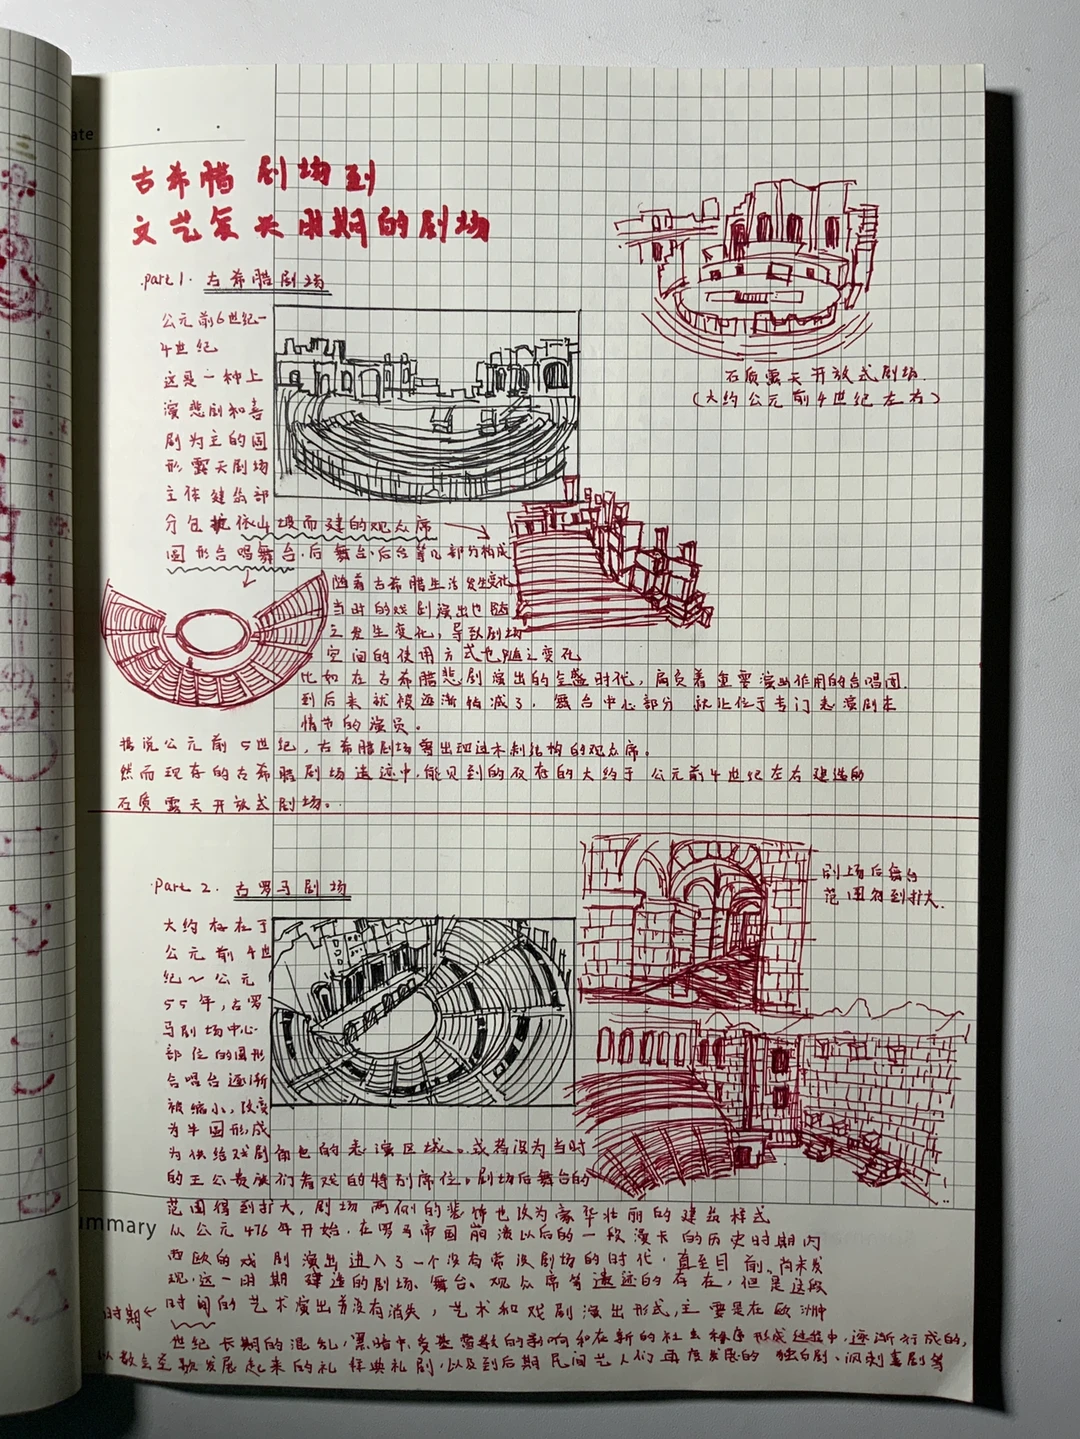 ate
古希腊剧场到
文艺复兴时期的剧场
part 1. 古希腊剧场
公元前6世纪-
4世纪
这是一种上
演悲剧和喜
剧为主的圆
形露天剧场
主体建筑部
分包括依山坡而建的观众席
圆形合唱舞台.后舞台.后台等几部分构成
石质露天开放式剧场.
(大约公元前4世纪左右)
随着古希腊生活发生变化
当时的戏剧演出也随
之发生变化,导致剧场
空间的使用方式也随之变化
比如在古希腊悲剧演出的全盛时代,肩负着重要演出作用的合唱团.
到后来就被逐渐缩减了,舞台中心部分就让位于专门表演剧本
情节的演员。
据说公元前5世纪,古希腊剧场曾出现过木制结构的观众席。
然而现存的古希腊剧场遗迹中,能见到的仅存的大约于公元前4世纪左右建造的
石质露天开放式剧场。
part 2. 古罗马剧场
剧场后舞台
范围得到扩大.
大约存在于
公元前4世
纪～公元
55年,古罗
马剧场中心
部位的圆形
合唱台逐渐
被缩小,改变
为半圆形,成
为供给戏剧角色的表演区域。或者设为当时
的王公贵族们看戏的特别席位。剧场后舞台的
范围得到扩大,剧场两侧的装饰也改为豪华壮丽的建筑样式
ummary
从公元476年开始,在罗马帝国崩溃以后的一段漫长的历史时期内
西欧的戏剧演出进入了一个没有常设剧场的时代,直至目前,尚未发
现,这一时期建造的剧场、舞台、观众席等遗迹的存在,但是这段
时期←时间的艺术演出并没有消失,艺术和戏剧演出形式,主要是在欧洲中
世纪长期的混乱,黑暗中,受基督教的影响和在新的社会秩序形成过程中,逐渐形成的,
以教会圣歌发展起来的礼拜典礼剧,以及到后期民间艺人们再度发展的独白剧、讽刺喜剧等